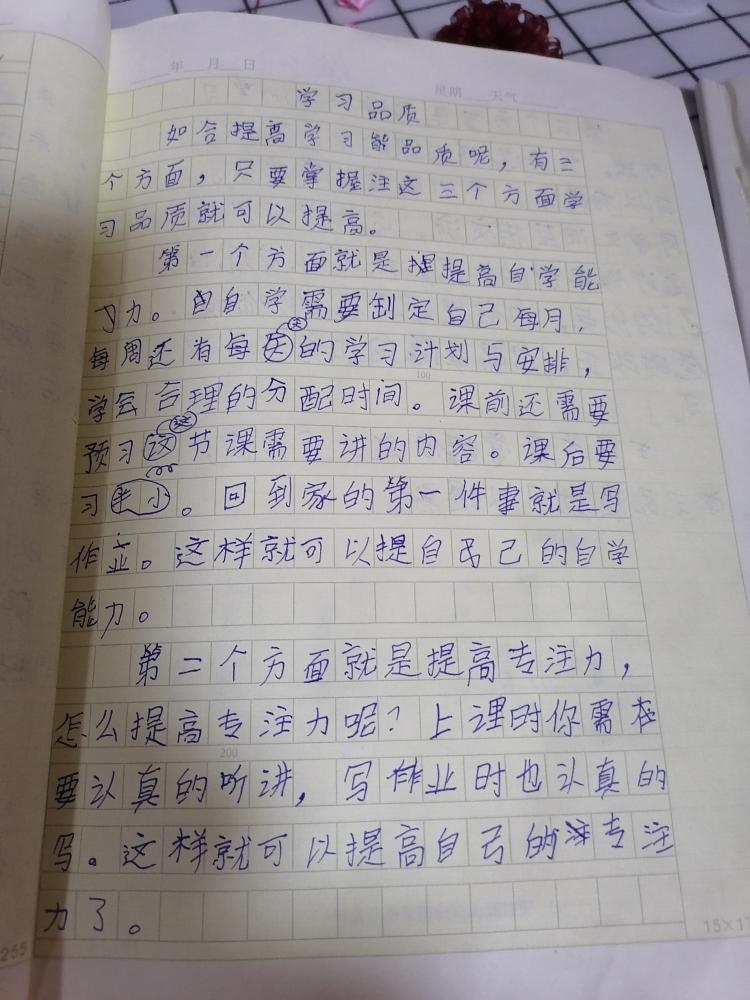 年 月 日
星期 天气
学习品质
如合提高学习能品质呢，有三
个方面，只要掌握注这三个方面学
习品质就可以提高。
第一个方面就是提提高自学能
力。自自学需要制定自己每月，
天
每周还有每天的学习计划与安排，
100
学会合理的分配时间。课前还需要
这
预习这节课需要讲的内容。课后要
习。回到家的第一件事就是写
作业。这样就可以提自己的自学
能力。
第二个方面就是提高专注力，
怎么提高专注力呢？上课时你需在
200
要认真的听讲，写作业时也认真的
写。这样就可以提高自己的注专注
力了。
255
15×17